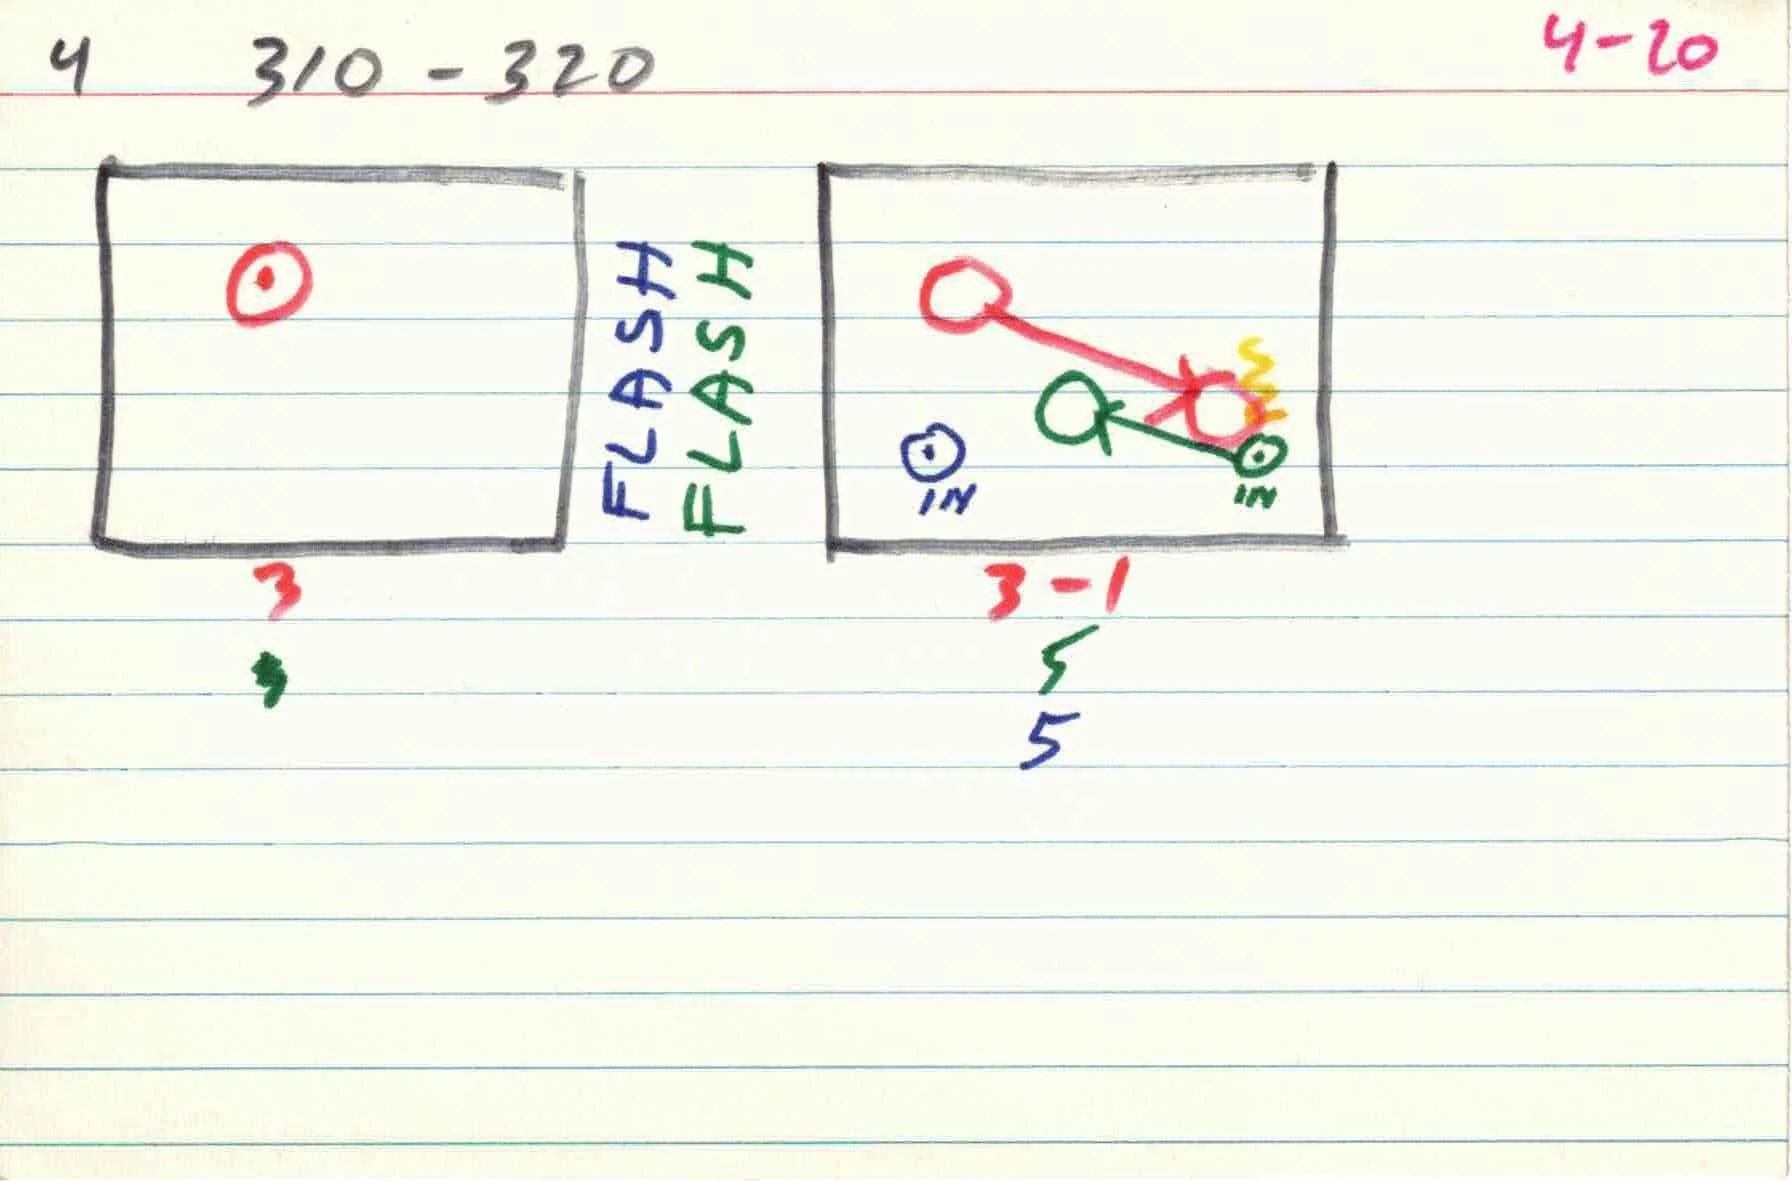 4 310 - 320 4-20
FLASH
FLASH
IN
IN
3
3-1
5
5